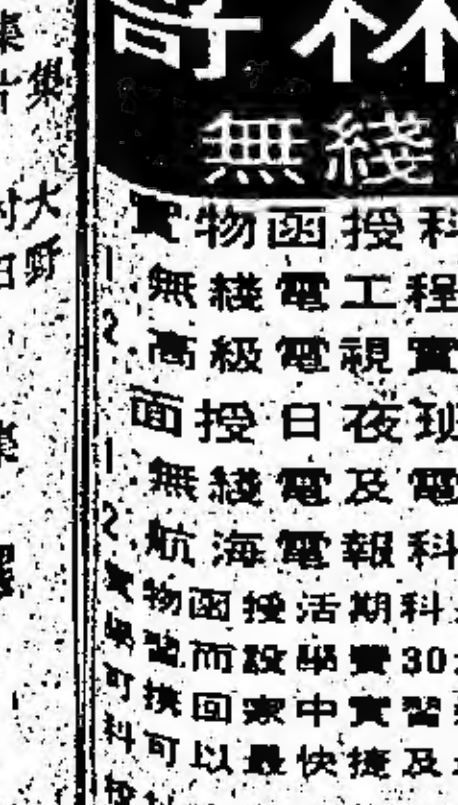 林
無綫
實物函授科
1.無綫電工程
2.高級電視實
面授日夜班
1.無綫電及電
2.航海電報科
實物函授活期科
學習而設學費30
可携回家中實習
科可以最快捷及
集
集
大野